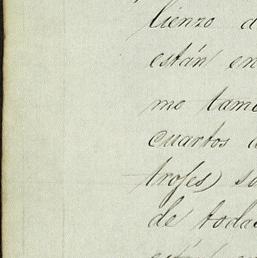 lienzo d
están en
mo tam
cuartos d
trofes) so
de todas